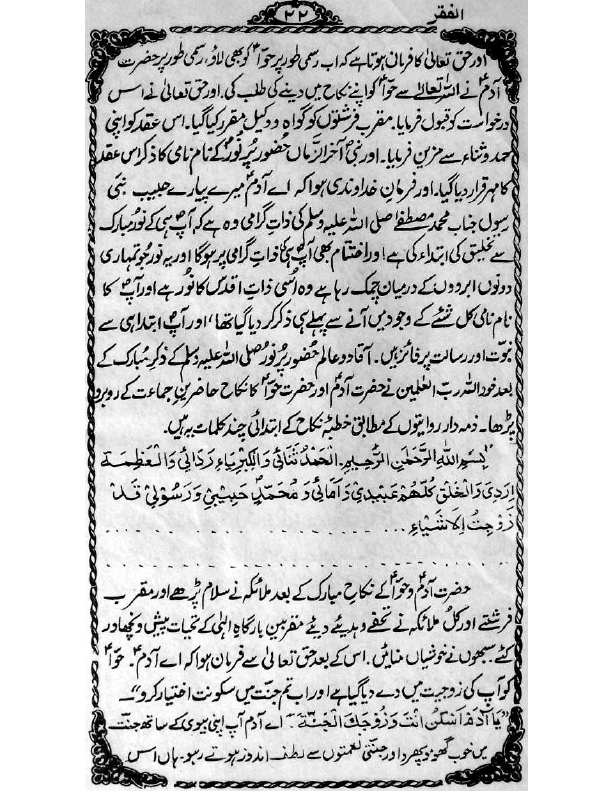 الفقر
۲۲
اور حق تعالیٰ کا فرمان ہوتا ہے کہ اب رسمی طور پر حواؑ کو بھی لاؤ، رسمی طور پر حضرت
آدمؑ نے اللہ تعالےٰ سے حواؑ کو اپنے نکاح میں دینے کی طلب کی، اور حق تعالیٰ نے اس
درخواست کو قبول فرمایا۔ مقرب فرشتوں کو گواہ و وکیل مقرر کیا گیا۔ اس عقد کو اپنی
حمد و ثناء سے مزین فرمایا۔ اور نبیؐ آخر الزماں حضور پُر نورؐ کے نام نامی کا ذکر اس عقد
کا مہر قرار دیا گیا۔ اور فرمانِ خداوندی ہوا کہ اے آدمؑ میرے پیارے حبیب نبی
رسول جناب محمد مصطفےٰ صلی اللہ علیہ وسلم کی ذاتِ گرامی وہ ہے کہ آپؐ ہی کے نور مبارک
سے تخلیق کی ابتداء کی ہے! اور اختتام بھی آپؐ کی ذات گرامی پر ہوگا اور یہ نور جو تمہاری
دونوں ابروؤں کے درمیان چمک رہا ہے وہ اُسی ذاتِ اقدس کا نُور ہے اور آپؐ کا
نام نامی کل شئے کے وجود میں آنے سے پہلے ہی ذکر کر دیا گیا تھا، اور آپؐ ابتدا ہی سے
نبوت اور رسالت پر فائز ہیں۔ آقاء دو عالم حضور پُر نور صلی اللہ علیہ وسلم کے ذکرِ مُبارک کے
بعد خود اللہ ربّ العٰلمین نے حضرت آدمؑ اور حضرت حواؑ کا نکاح حاضرین جماعت کے روبرو
پڑھا۔ ذمہ دار روایتوں کے مطابق خطبۂ نکاح کے ابتدائی چند کلمات یہ ہیں۔
بِسْمِ اللهِ الرَّحْمٰنِ الرَّحِيْمِ اَلْحَمْدُ ثَنَائِیْ وَالْكِبْرِيَاءِ رَدَائِیْ وَالْعَظِمَةِ
اِرَدِی وَالْخَلْقِ كُلُّهُمْ عَبِيْدِیْ وَاَمَائِیْ وَ مُحَمَّدٍ حَبِيْبِیْ وَرَسُوْلِیْ قَدْ
زَوَّجْتُ اِلاَشْيَاءِ . . . . . . . . . . . . . . .
. . . . . . . . . . . . . . . . . . . . . . . . . . . .
حضرت آدمؑ و حواؑ کے نکاحِ مبارک کے بعد ملائکہ نے سلام پڑھے اور مقرب
فرشتے اور کُل ملائکہ نے تحفے و ہدیئے دیئے مقربین بارگاہِ الہٰی کے تحیات پیش و نچھاور
کئے سبھوں نے خوشیاں منائیں۔ اس کے بعد حق تعالیٰ سے فرمان ہوا کہ اے آدمؑ۔ حواؑ
کو آپ کی زوجیت میں دے دیا گیا ہے اور اب تم جنّت میں سکونت اختیار کرو"۔
"يَا اٰدَمُ اسْكُنْ اَنْتَ وَزَوْجُكَ الْجَنَّةَ۔ اے آدم آپ اپنی بیوی کے ساتھ جنت
میں خوب گھومو پھرو اور جنتی نعمتوں سے لطف اندوز ہوتے رہو۔ ہاں اس